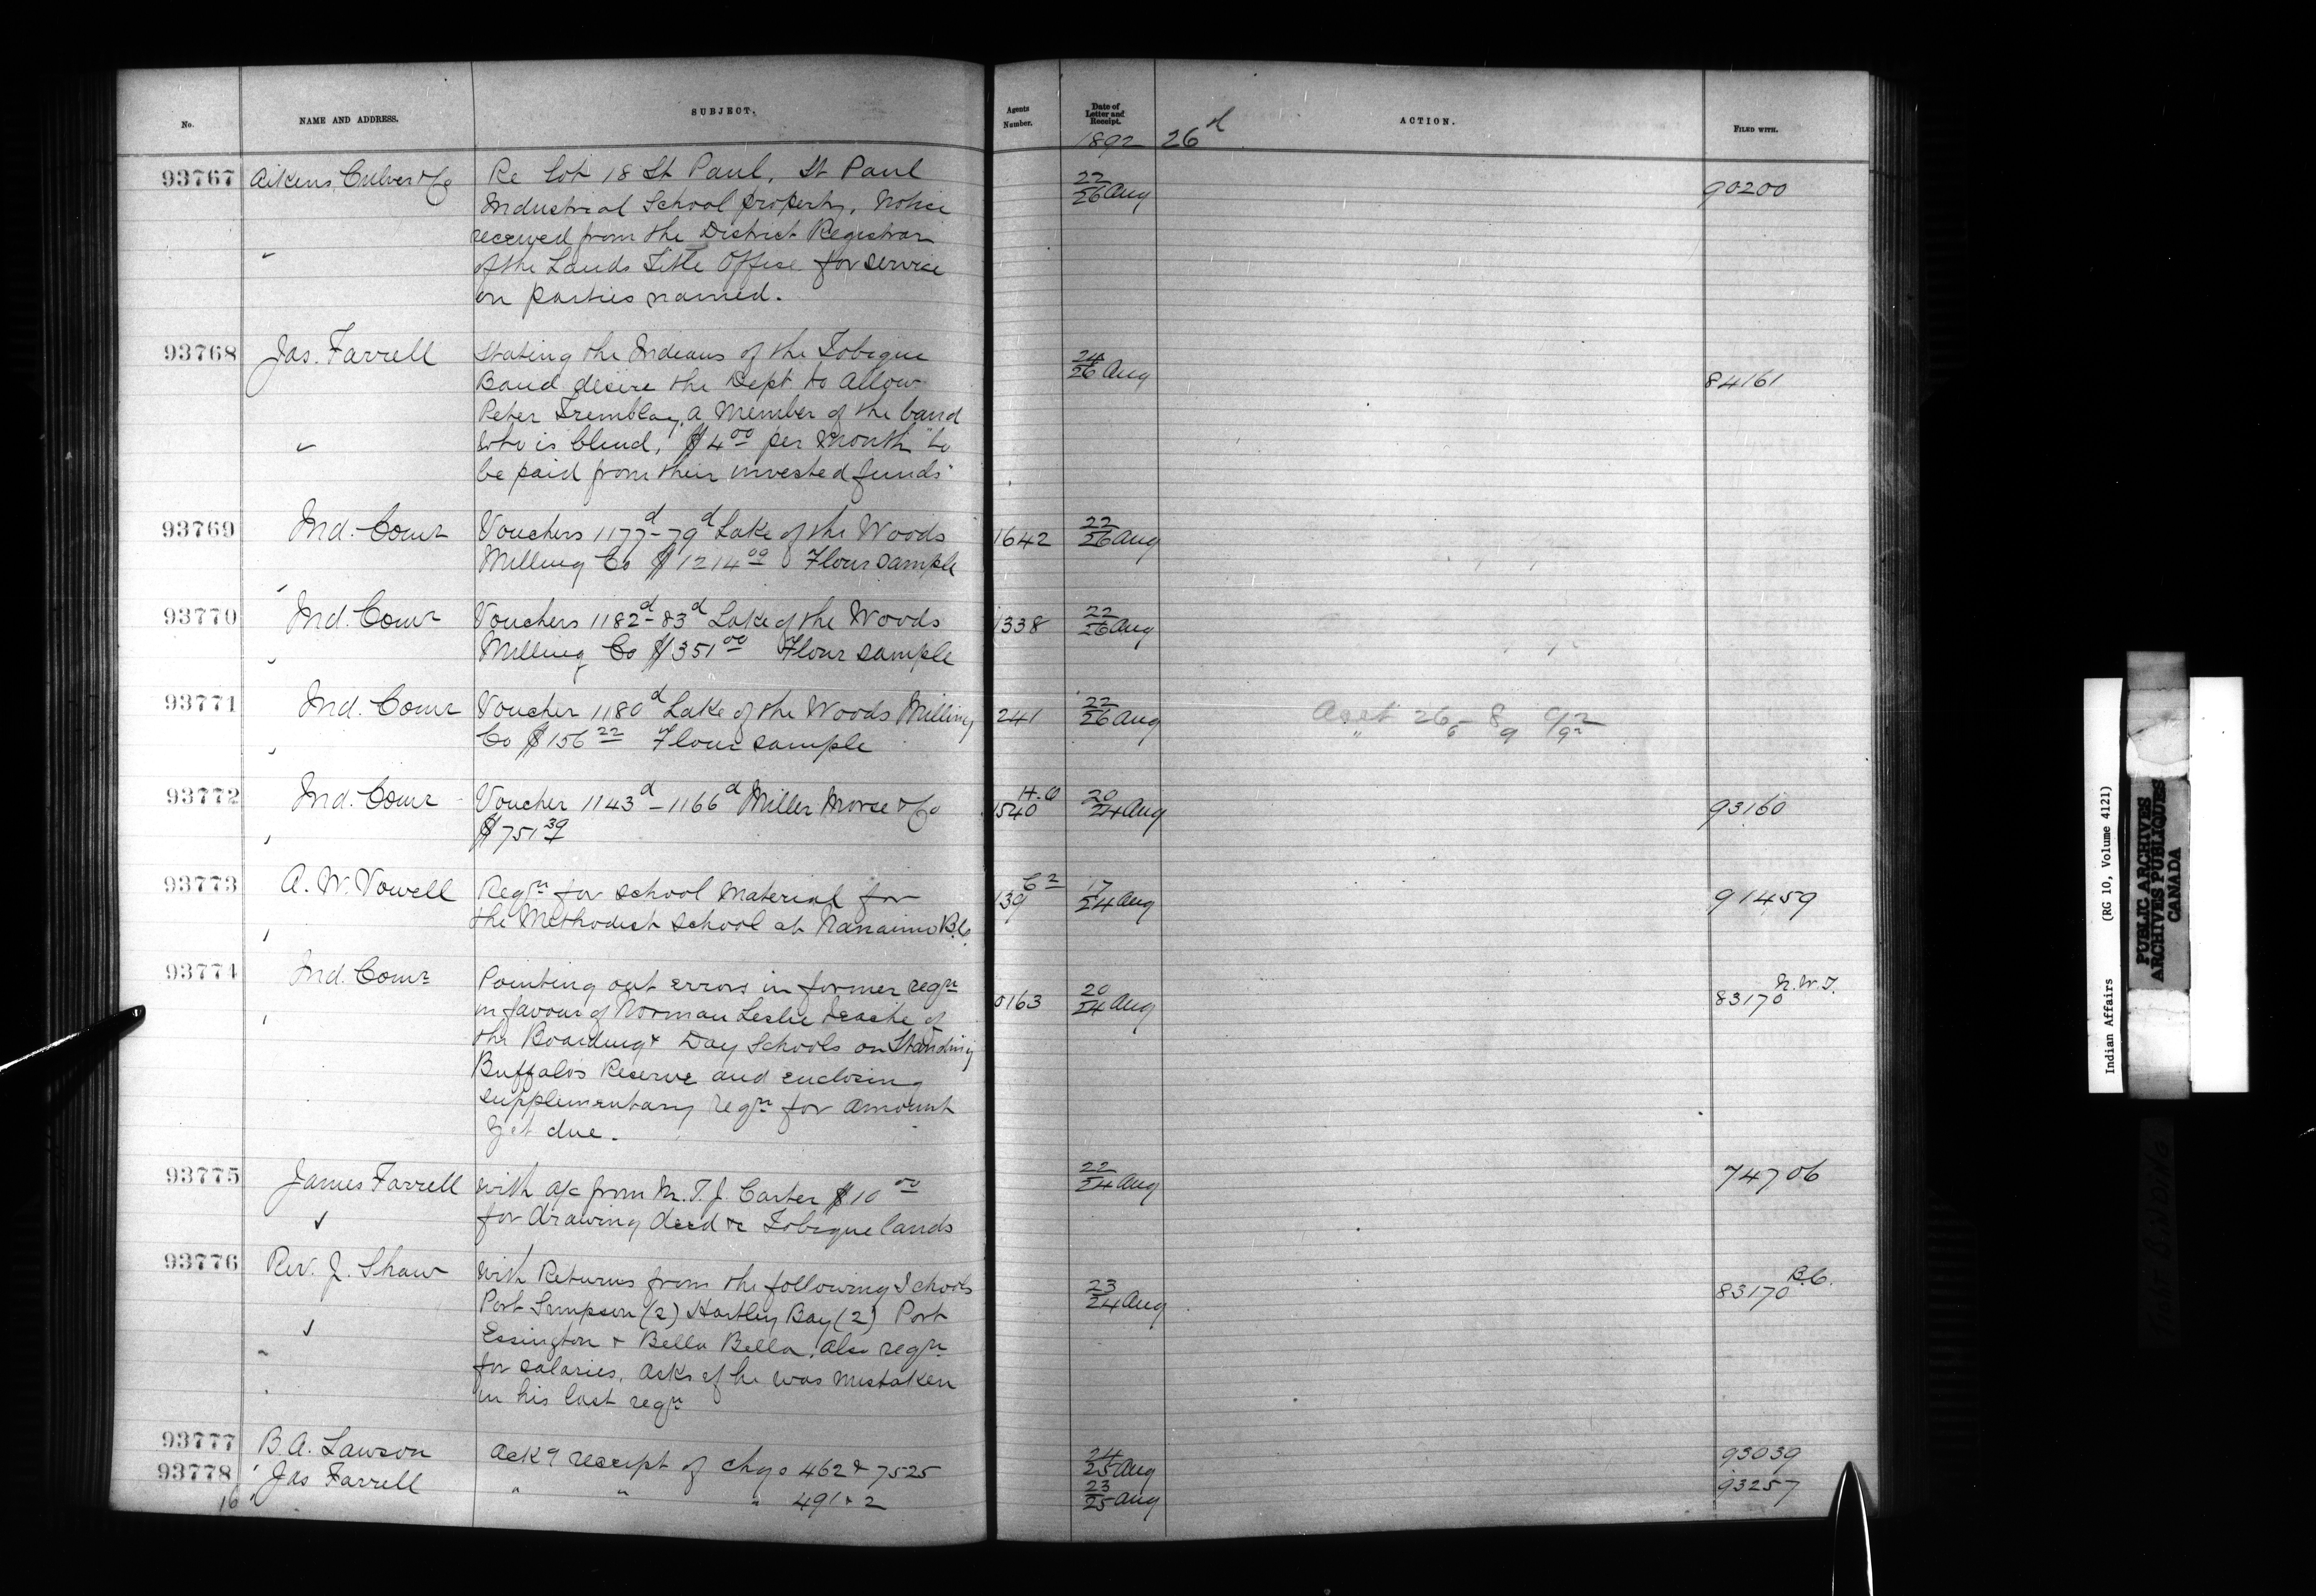 No.
NAME AND ADDRESS.
SUBJECT.
Agents Number.
Date of Letter and Receipt.
ACTION.
FILED WITH.
1892
26d
93767 Aikens, Culver & Co
Re Lot 18 St Paul, St Paul
Industrial School property, Notice
received from the District Registrar
of the Lands Title Office for service
on parties named.
22/26 Aug
90200
93768 Jas. Farrell
Stating the Indians of the Tobique
Band desire the Dept to allow
Peter Tremblay, a member of the band
who is blind, $4 00 per month "to
be paid from their invested funds"
24/26 Aug
84161
93769 Ind. Comr
Vouchers 1177d-79d Lake of the Woods
Milling Co $1214 00 Flour sample
1642
22/26 Aug
93770 Ind. Comr
Vouchers 1182d-83d Lake of the Woods
Milling Co $351 00 Flour sample
1338
22/26 Aug
93771 Ind. Comr
Voucher 1180d Lake of the Woods Milling
Co $156 22 Flour sample
241
22/26 Aug
93772 Ind. Comr
Voucher 1143d - 1166d Miller Morse & Co
$751 39
1540
20/24 Aug
93160
93773 A. W. Vowell
Reqn for school material for
the Methodist school at Nanaimo B.C.
139
17/24 Aug
91459
93774 Ind. Comr
Pointing out errors in former reqn
in favour of Norman Leslie teache of
the Boarding & Day Schools on Standing
Buffalos Reserve and enclosing
supplementary reqn for amount
yet due.
0163
20/24 Aug
83170 N.W.T.
93775 James Farrell
with a/c from Mr. T. J. Carter $10 00
for drawing deed re Tobique lands
22/24 Aug
74706
93776 Rev. J. Shaw
with Returns from the following Schools
Port Simpson (2) Hartley Bay (2) Port
Essington & Bella Bella. also reqn
for salaries, asks if he was mistaken
in his last reqn
23/24 Aug
83170 B.C.
93777 B. A. Lawson
Ackg receipt of chqs 462 & 7525
24/25 Aug
93039
93778 Jas Farrell
" " " 491 & 2
23/25 Aug
93257
16
Indian Affairs (RG 10, Volume 4121)
PUBLIC ARCHIVES
ARCHIVES PUBLIQUES
CANADA